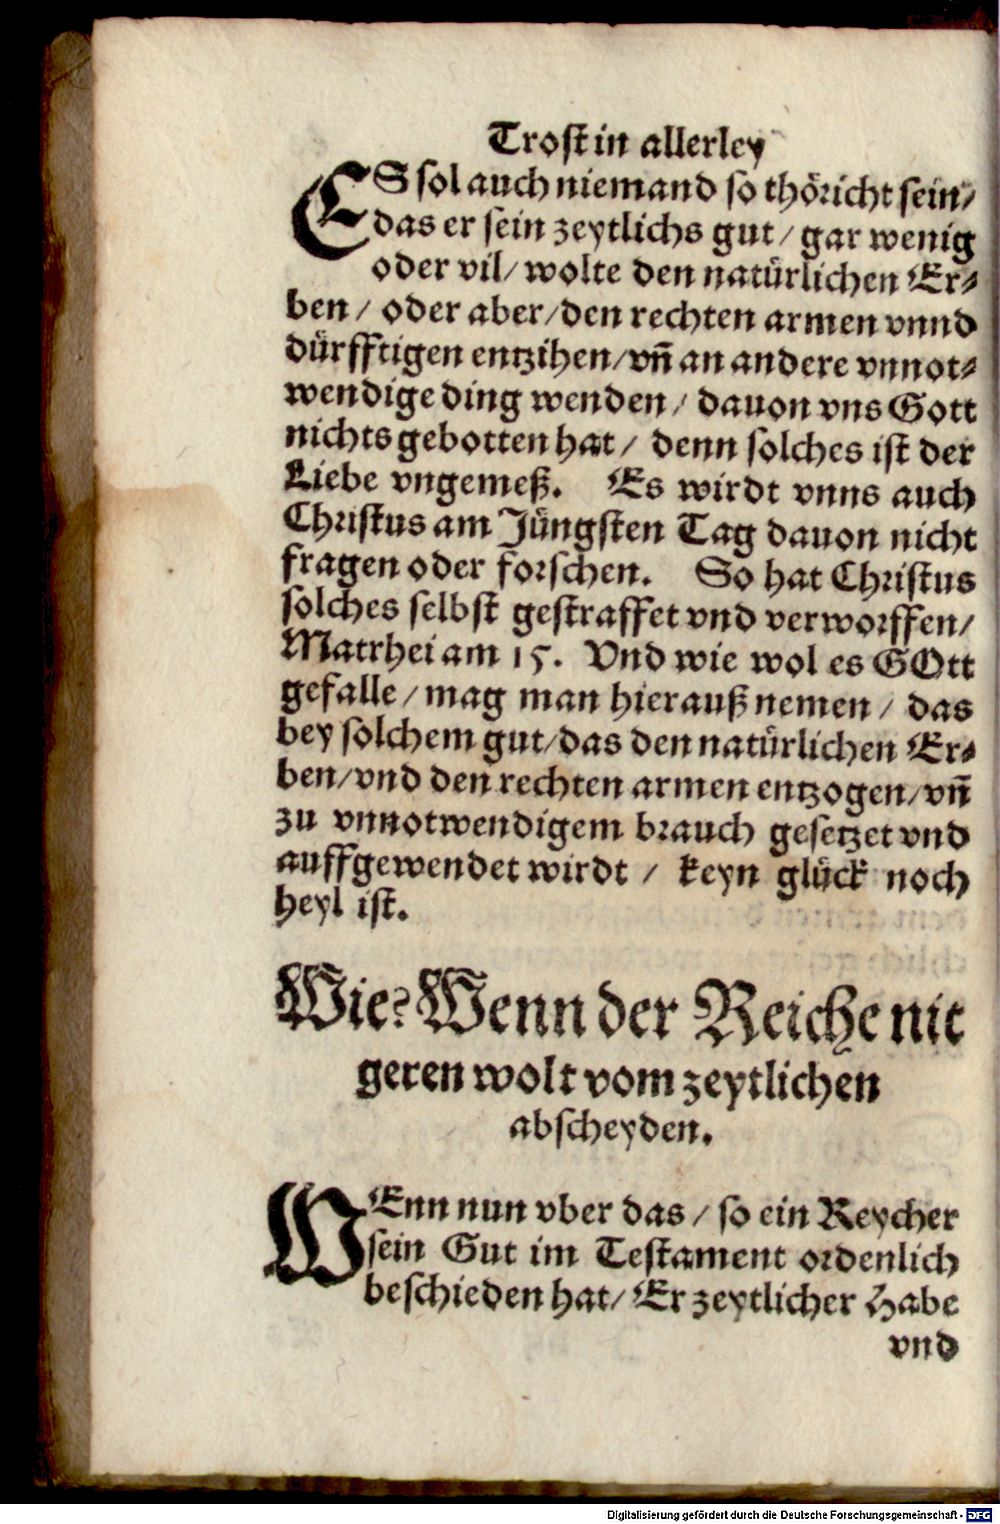 Trost in allerley
ES sol auch niemand so thöricht sein/
das er sein zeytlichs gut / gar wenig
oder vil/ wolte den natürlichen Er⸗
ben / oder aber/den rechten armen vnnd
dürfftigen entzihen/vñ an andere vnnot⸗
wendige ding wenden / dauon vns Gott
nichts gebotten hat / denn solches ist der
Liebe vngemeß. Es wirdt vnns auch
Christus am Jüngsten Tag dauon nicht
fragen oder forschen. So hat Christus
solches selbst gestraffet vnd verworffen/
Matrhei am 15. Vnd wie wol es GOtt
gefalle / mag man hierauß nemen / das
bey solchem gut/das den natürlichen Er⸗
ben/vnd den rechten armen entzogen/vñ
zu vnnotwendigem brauch gesetzet vnd
auffgewendet wirdt / keyn glück noch
heyl ist.
Wie? Wenn der Reiche nit
geren wolt vom zeytlichen
abscheyden.
WEnn nun vber das / so ein Reycher
sein Gut im Testament ordenlich
beschieden hat/ Er zeytlicher Habe
vnd
Digitalisierung gefördert durch die Deutsche Forschungsgemeinschaft - DFG